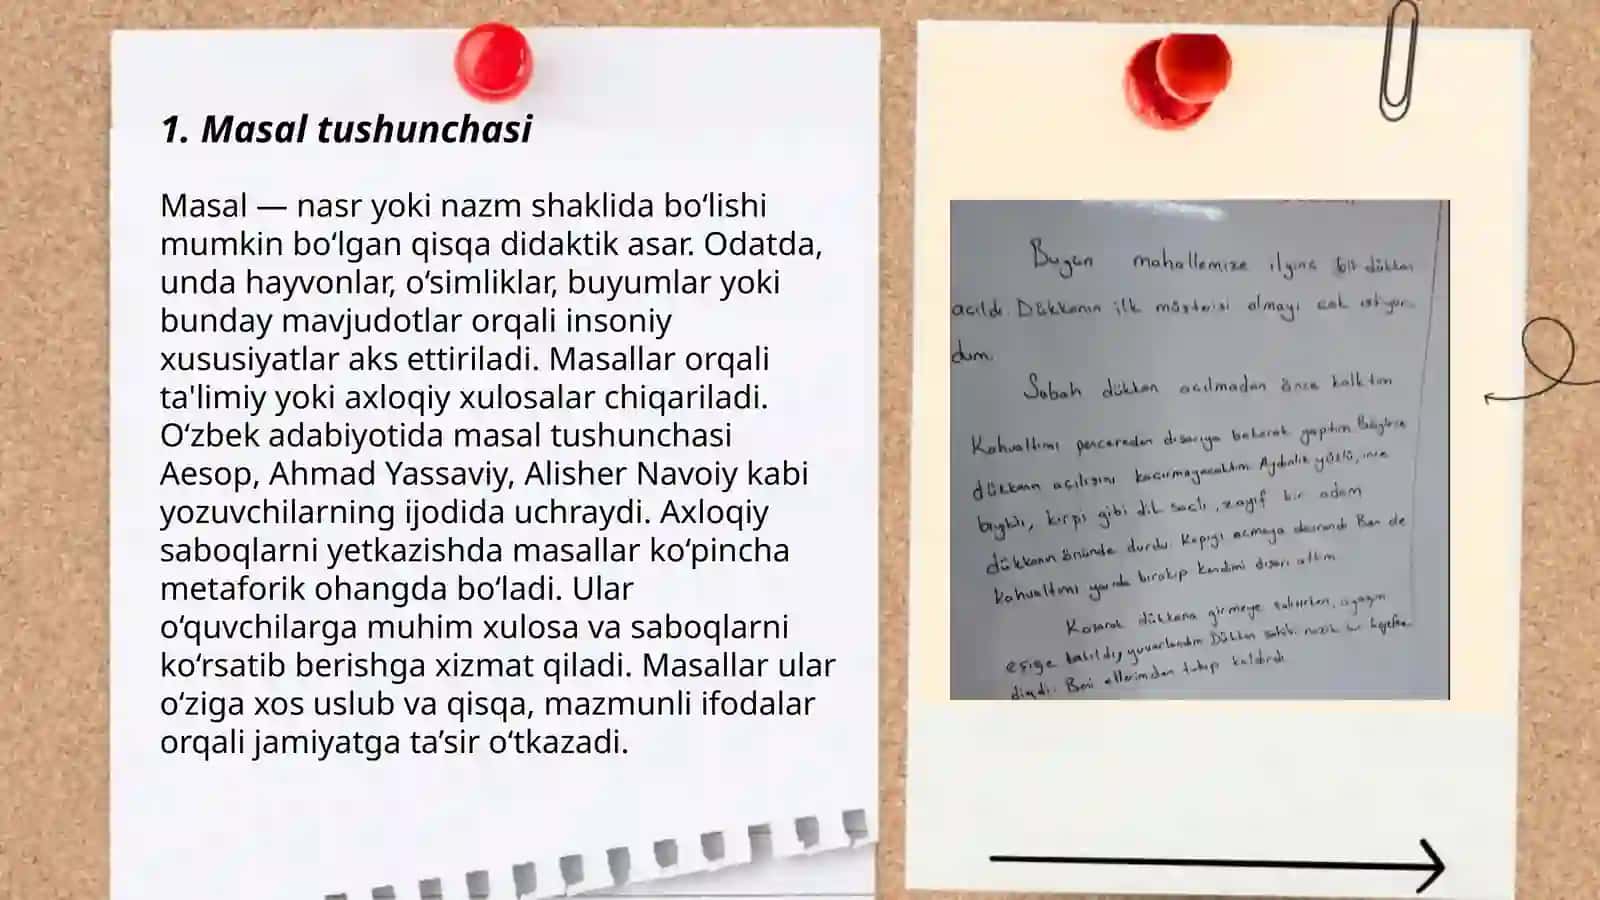 1. Masal tushunchasi
Masal — nasr yoki nazm shaklida bo‘lishi
mumkin bo‘lgan qisqa didaktik asar. Odatda,
unda hayvonlar, o‘simliklar, buyumlar yoki
bunday mavjudotlar orqali insoniy
xususiyatlar aks ettiriladi. Masallar orqali
ta'limiy yoki axloqiy xulosalar chiqariladi.
O‘zbek adabiyotida masal tushunchasi
Aesop, Ahmad Yassaviy, Alisher Navoiy kabi
yozuvchilarning ijodida uchraydi. Axloqiy
saboqlarni yetkazishda masallar ko‘pincha
metaforik ohangda bo‘ladi. Ular
o‘quvchilarga muhim xulosa va saboqlarni
ko‘rsatib berishga xizmat qiladi. Masallar ular
o‘ziga xos uslub va qisqa, mazmunli ifodalar
orqali jamiyatga ta’sir o‘tkazadi.
Bugün mahallemize ilginç bir dükkan
açıldı. Dükkanın ilk müşterisi olmayı çok istiyor-
dum.
Sabah dükkan açılmadan önce kalktım
Kahvaltımı pencereden dışarıya bakarak yaptım Böylece
dükkanın açılışını kaçırmayacaktım Aydınlık yüzlü, ince
bıyıklı, kirpi gibi dik saçlı, zayıf bir adam
dükkanın önünde durdu. Kapıyı açmaya davrandı Ben de
kahvaltımı yarıda bırakıp kendimi dışarı attım
Koşarak dükkana girmeye çalışırken, ayağım
eşiğe takıldı, yuvarlandım Dükkan sahibi nazik bir
Beni ellerimden tutup kaldırdı